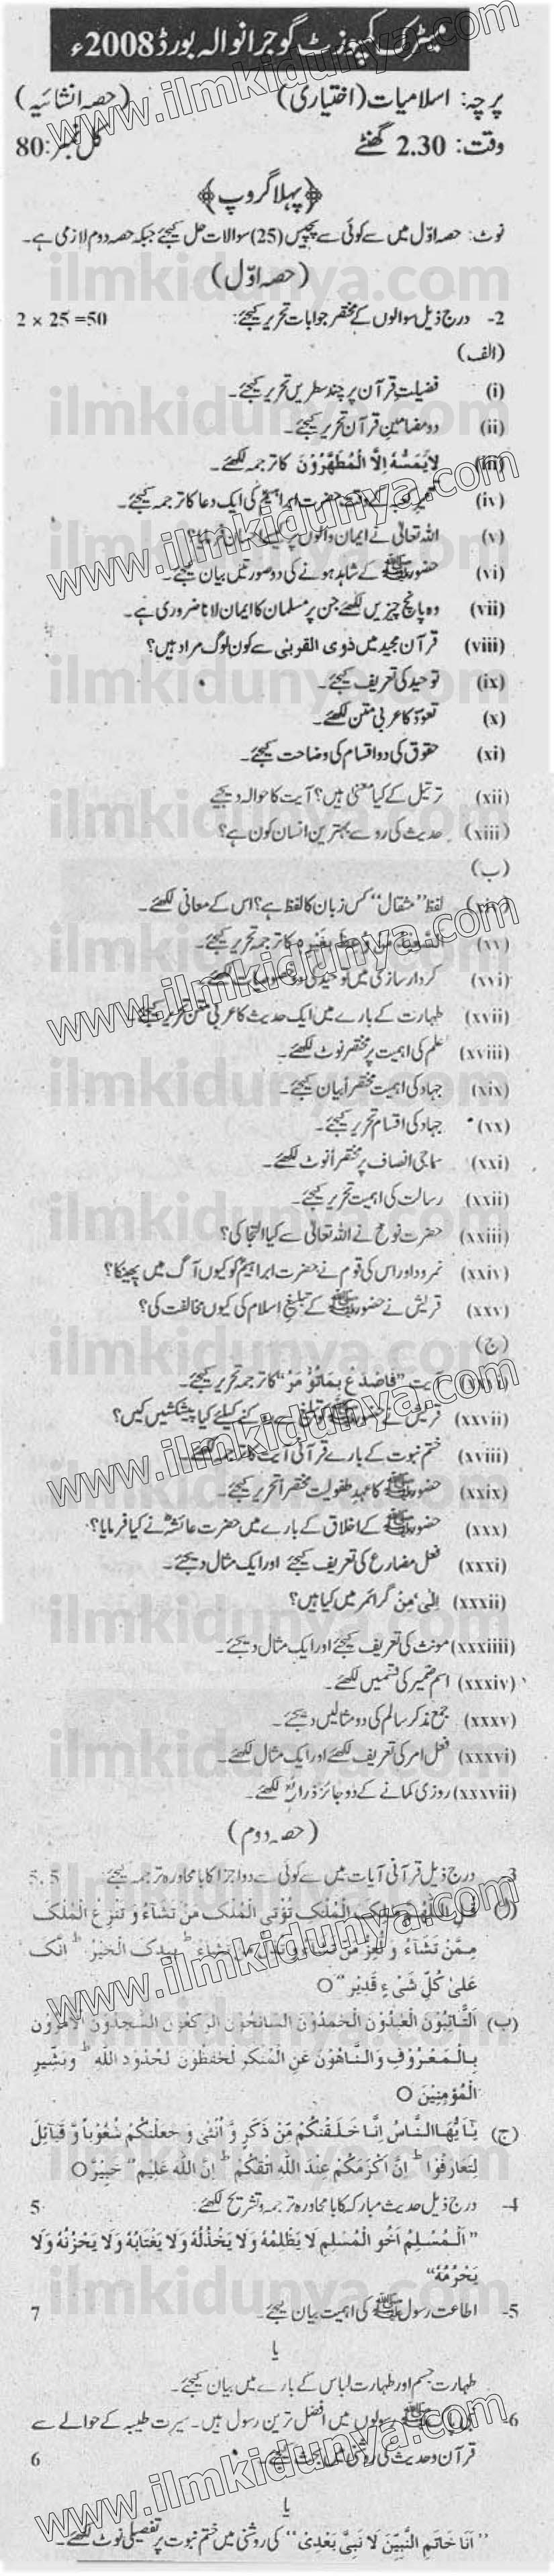 میٹرک کمپوزٹ گوجرانوالہ بورڈ 2008ء
پرچہ: اسلامیات (اختیاری) (حصہ انشائیہ)
وقت: 2.30 گھنٹے کل نمبر: 80
﴿پہلا گروپ﴾
نوٹ: حصہ اوّل میں سے کوئی سے پچیس (25) سوالات حل کیجئے جبکہ حصہ دوم لازمی ہے۔
(حصہ اوّل)
2- درج ذیل سوالوں کے مختصر جوابات تحریر کیجئے: 2 × 25 =50
(الف)
(i) فضیلت قرآن پر چند سطریں تحریر کیجئے۔
(ii) دو مضامین قرآن تحریر کیجئے۔
(iii) لَايَمَسُّهٗ اِلَّا الْمُطَهَّرُوْنَ کا ترجمہ لکھئے۔
(iv) حضرت ابراہیمؑ کی ایک دعا کا ترجمہ کیجئے۔
(v) اللہ تعالٰی نے ایمان والوں پر کیا احسان فرمایا؟
(vi) حضورﷺ کے شاہد ہونے کی دو صورتیں بیان کیجئے۔
(vii) وہ پانچ چیزیں لکھئے جن پر مسلمان کا ایمان لانا ضروری ہے۔
(viii) قرآن مجید میں ذوی القربٰی سے کون لوگ مراد ہیں؟
(ix) توحید کی تعریف کیجئے۔
(x) تعوّذ کا عربی متن لکھئے۔
(xi) حقوق کی دو اقسام کی وضاحت کیجئے۔
(xii) ترتیل کے کیا معنٰی ہیں؟ آیت کا حوالہ دیجیے
(xiii) حدیث کی رو سے بہترین انسان کون ہے؟
(ب)
لفظ "مثقال" کس زبان کا لفظ ہے؟ اس کے معانی لکھئے۔
(xv) السَّعِيْدُ مَنْ وُعِظَ بِغَيْرِهٖ کا ترجمہ تحریر کیجئے۔
(xvi) کردار سازی میں توحید کی
(xvii) طہارت کے بارے میں ایک حدیث کا عربی متن تحریر کیجئے۔
(xviii) علم کی اہمیت پر مختصر نوٹ لکھئے۔
(xix) جہاد کی اہمیت مختصراً بیان کیجئے۔
(xx) جہاد کی اقسام تحریر کیجئے۔
(xxi) سماجی انصاف پر مختصراً نوٹ لکھئے۔
(xxii) رسالت کی اہمیت تحریر کیجئے۔
(xxiii) حضرت نوحؑ نے اللہ تعالٰی سے کیا التجا کی؟
(xxiv) نمرود اور اس کی قوم نے حضرت ابراہیمؑ کو کیوں آگ میں پھینکا؟
(xxv) قریش نے حضورﷺ کے تبلیغ اسلام کی کیوں مخالفت کی؟
(ج)
آیت "فَاصْدَعْ بِمَاتُؤْمَرُ" کا ترجمہ تحریر کیجئے۔
(xxvii) قریش نے حضورﷺ کو تبلیغ سے روکنے کیلئے کیا پیشکشیں کیں؟
(xviii) ختم نبوت کے بارے قرآنی آیت کا ترجمہ لکھئے۔
(xxix) حضورﷺ کا عہد طفولیت مختصراً تحریر کیجئے۔
(xxx) حضورﷺ کے اخلاق کے بارے میں حضرت عائشہؓ نے کیا فرمایا؟
(xxxi) فعل مضارع کی تعریف کیجئے اور ایک مثال دیجئے۔
(xxxii) اِلٰی، مِنْ گرائمر میں کیا ہیں؟
(xxxiiii) مونث کی تعریف کیجئے اور ایک مثال دیجئے۔
(xxxiv) اسم ضمیر کی قسمیں لکھئے۔
(xxxv) جمع مذکر سالم کی دو مثالیں دیجئے۔
(xxxvi) فعل امر کی تعریف لکھئے اور ایک مثال لکھئے۔
(xxxvii) روزی کمانے کے دو جائز ذرائع لکھئے۔
(حصہ دوم)
3- درج ذیل قرآنی آیات میں سے کوئی سے دو اجزا کا بامحاورہ ترجمہ کیجئے: 5, 5
(ا) قُلِ اللّٰهُمَّ مٰلِكَ الْمُلْكِ تُؤْتِى الْمُلْكَ مَنْ تَشَآءُ وَ تَنْزِعُ الْمُلْكَ
مِمَّنْ تَشَآءُ وَ تُعِزُّ مَنْ تَشَآءُ وَ تُذِلُّ مَنْ تَشَآءُ ؕ بِيَدِكَ الْخَيْرُ ؕ اِنَّكَ
عَلٰى كُلِّ شَىْءٍ قَدِيْرٌ ۝
(ب) اَلتَّآئِبُوْنَ الْعٰبِدُوْنَ الْحٰمِدُوْنَ السَّآئِحُوْنَ الرّٰكِعُوْنَ السّٰجِدُوْنَ الْاٰمِرُوْنَ
بِالْمَعْرُوْفِ وَالنَّاهُوْنَ عَنِ الْمُنْكَرِ لْحٰفِظُوْنَ لِحُدُوْدِ اللّٰهِ ؕ وَبَشِّرِ
الْمُؤْمِنِيْنَ ۝
(ج) يٰۤاَيُّهَاالنَّاسُ اِنَّا خَلَقْنٰكُمْ مِّنْ ذَكَرٍ وَّ اُنْثٰى وَ جَعَلْنٰكُمْ شُعُوْباً وَّ قَبَآئِلَ
لِتَعَارَفُوْا ؕ اِنَّ اَكْرَمَكُمْ عِنْدَ اللّٰهِ اَتْقٰكُمْ ؕ اِنَّ اللّٰهَ عَلِيْمٌ خَبِيْرٌ ۝
4- درج ذیل حدیث مبارکہ کا بامحاورہ ترجمہ و تشریح لکھئے: 5
"اَلْمُسْلِمُ اَخُو الْمُسْلِمِ لَا يَظْلِمُهٗ وَلَا يَخْذُلُهٗ وَلَا يَغْتَابُهٗ وَلَا يَحْزُنُهٗ وَلَا
يَحْرُمُهٗ"
5- اطاعت رسولﷺ کی اہمیت بیان کیجئے۔ 7
یا
طہارت جسم اور طہارت لباس کے بارے میں بیان کیجئے۔
6- نبی پاکﷺ رسولوں میں افضل ترین رسول ہیں۔ سیرت طیبہ کے حوالے سے
قرآن و حدیث کی روشنی میں بحث کیجئے۔ 6
یا
"اَنَا خَاتَمُ النَّبِيّٖنَ لَا نَبِيَّ بَعْدِيْ" کی روشنی میں ختم نبوت پر تفصیلی نوٹ لکھئے۔
www.ilmkidunya.com
ilmkidunya.com